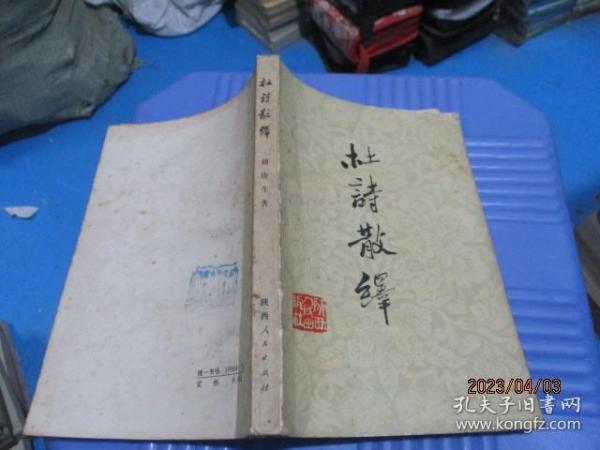 杜詩散繹
杜詩散繹
傅庚生著
陕西人民出版社
统一书号
定价
2023/04/03
孔夫子旧书网
www.kongfz.com